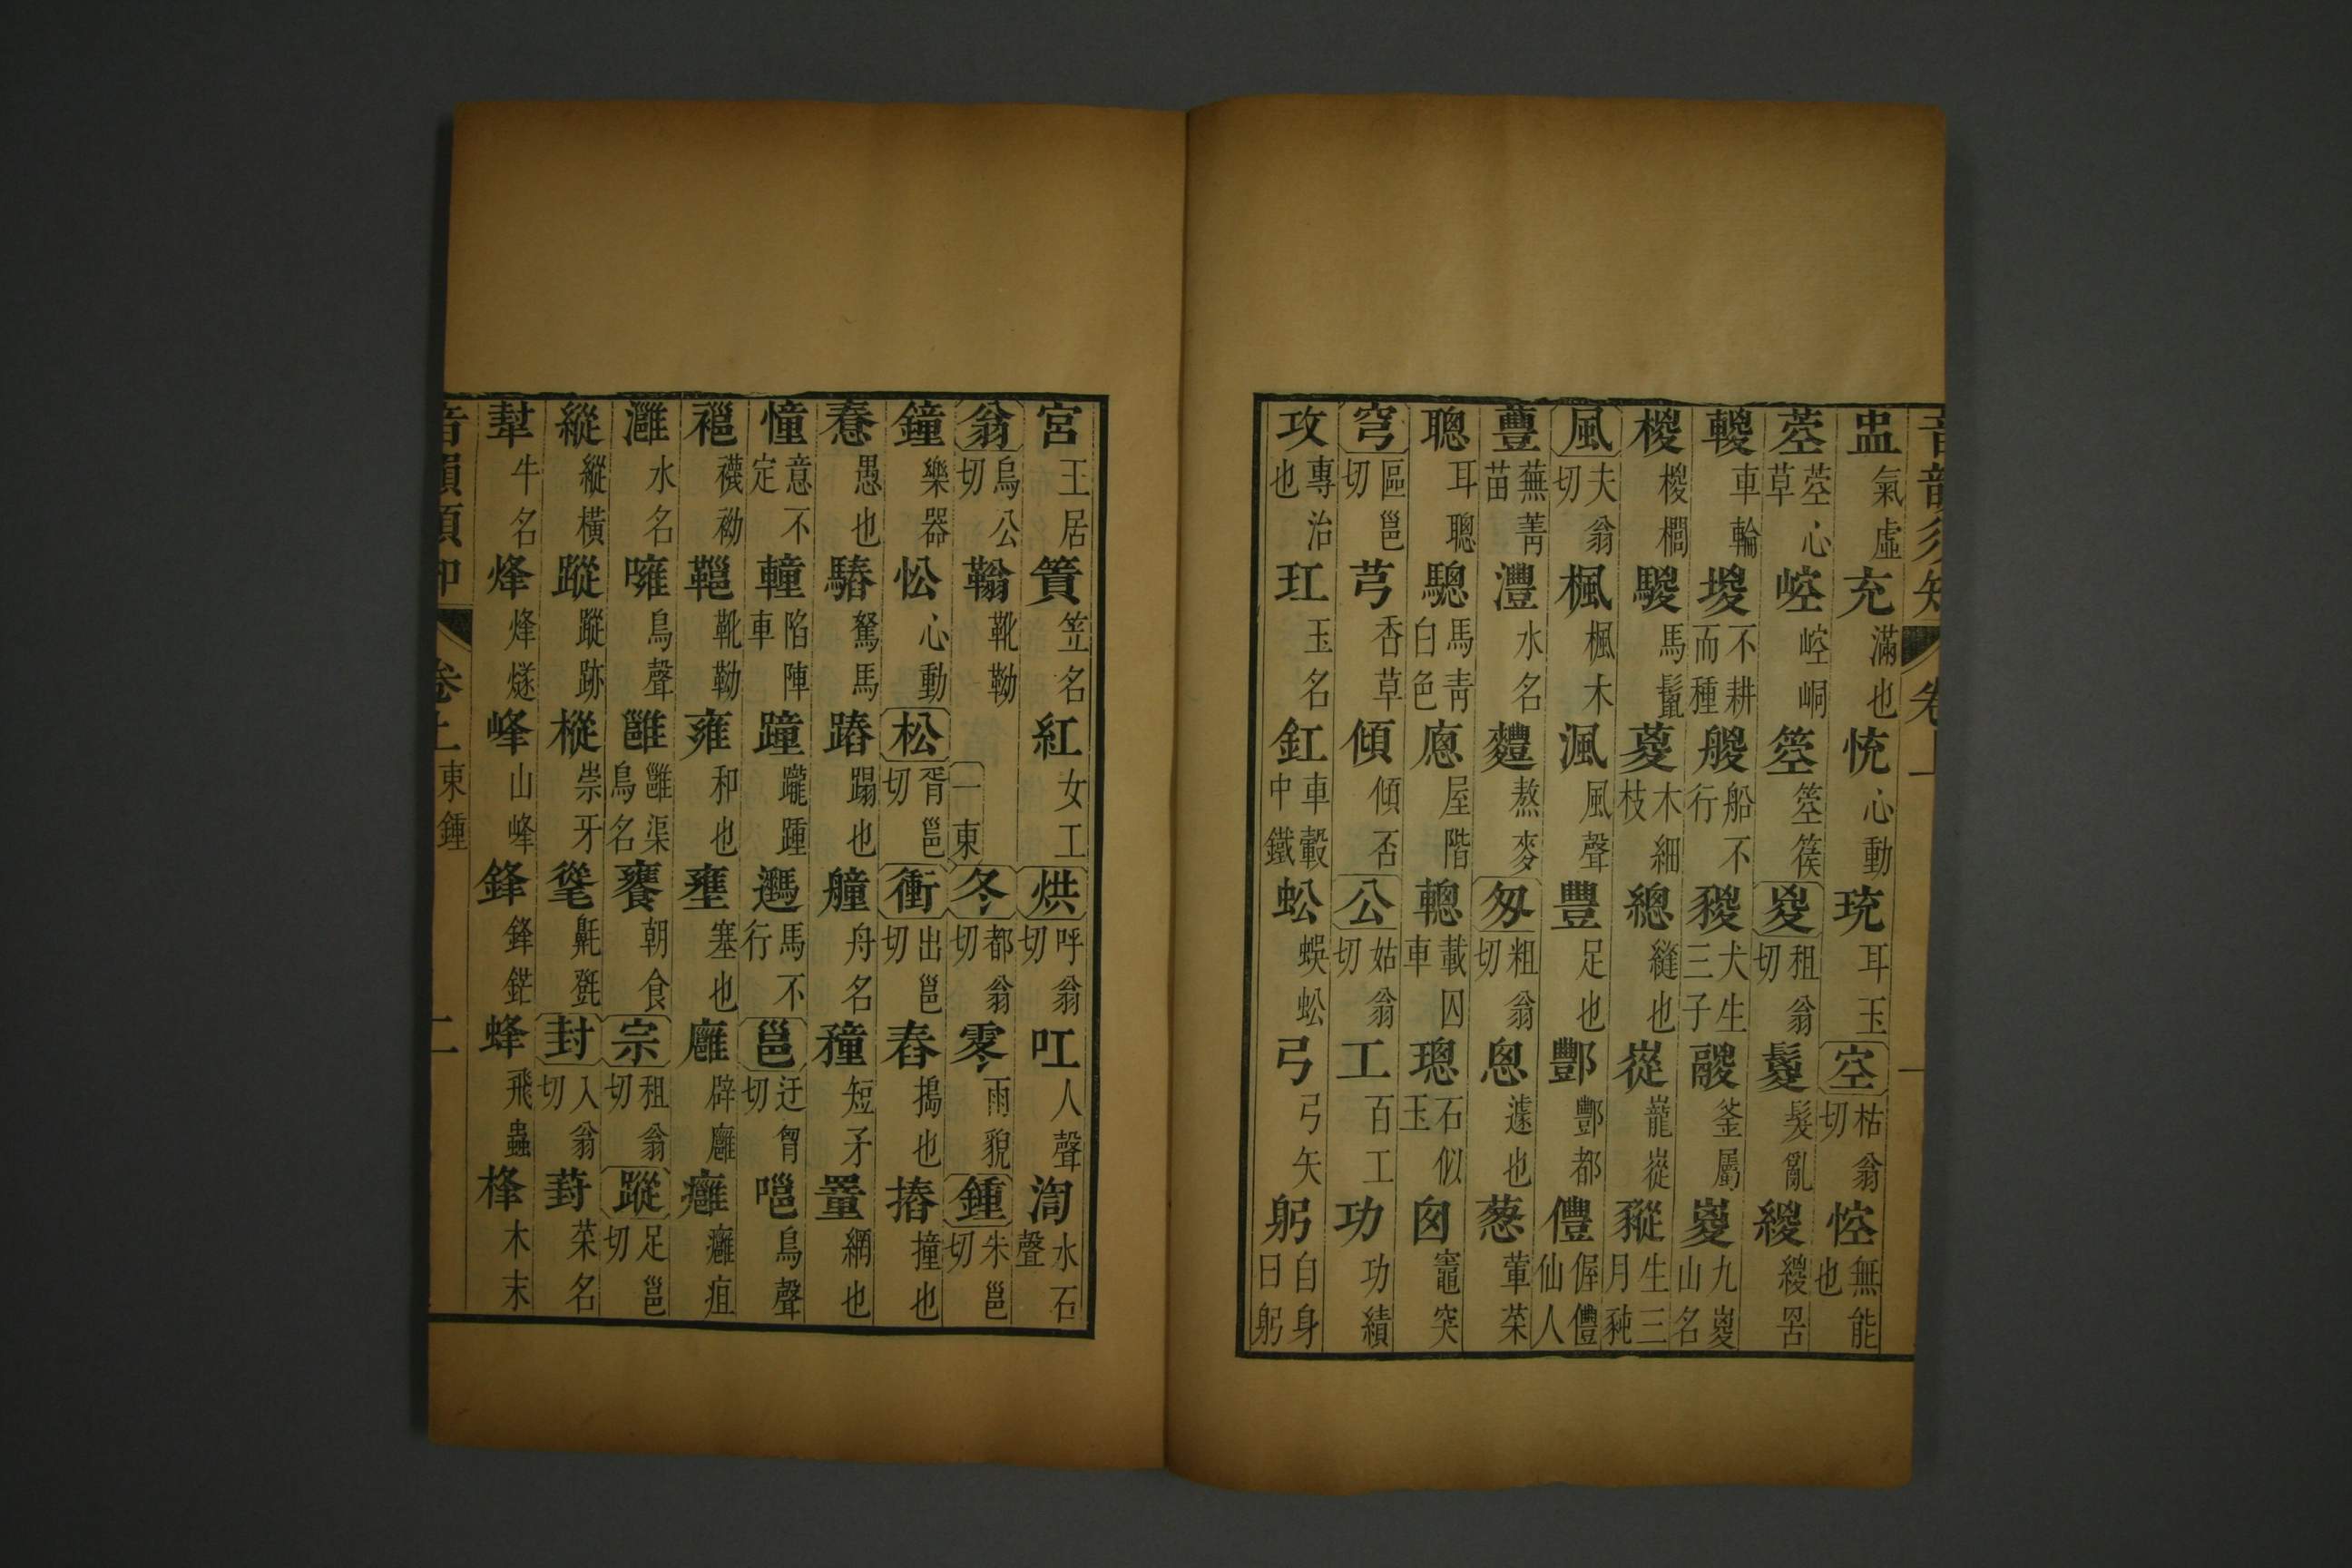 音韻須知 卷上 一
盅氣虛 充滿也 㤝心動 珫耳玉 空枯翁切 悾無能也
䓖䓖心草 崆崆峒 箜箜篌 㚇租翁切 鬉髮亂 緵緵罟
䡯車輪 堫不耕而種 艐船不行 猣犬生三子 鬷釜屬 嵏九嵏山名
椶椶櫚 騣馬鬣 葼木細枝 總縫也 嵸巃嵸 豵生三月豘
風夫翁切 楓楓木 渢風聲 豐足也 酆酆都 僼偓僼仙人
蘴蕪菁苗 灃水名 麷熬麥 匆粗翁切 怱遽也 蔥葷菜
聰耳聰 驄馬青白色 廖屋階 轗載囚車 璁石似玉 囪竈突
穹區邕切 芎香草 傾傾否 公姑翁切 工百工 功功績
攻專治也 玒玉名 釭車轂中鐵 蚣蜈蚣 弓弓矢 躬自身曰躬
宮王居 篢笠名 紅女工 烘呼翁切 吽人聲 渹水石聲
翁烏公切 鞥靴靿 一東 冬都翁切 零雨貌 鍾朱邕切
鐘樂器 忪心動 松胥邕切 衝出邕切 舂搗也 摏撞也
惷愚也 騺駑馬 蹖蹋也 艟舟名 穜短矛 罿網也
憧意不定 轀陷陣車 蹱躘踵 䢔馬不行 邕迂胷切 嗈鳥聲
褦襪袎 䩸靴靿 雍和也 壅塞也 廱辟廱 癰癰疽
灉水名 噰鳥聲 雝雝渠鳥名 饔朝食 宗租翁切 蹤足邕切
縱縱橫 蹤蹤跡 樅崇牙 㲨氄㲪 封入翁切 葑菜名
犎牛名 烽烽燧 峰山峰 鋒鋒鋩 蜂飛蟲 桻木末
音韻須知 卷上 東鍾 二